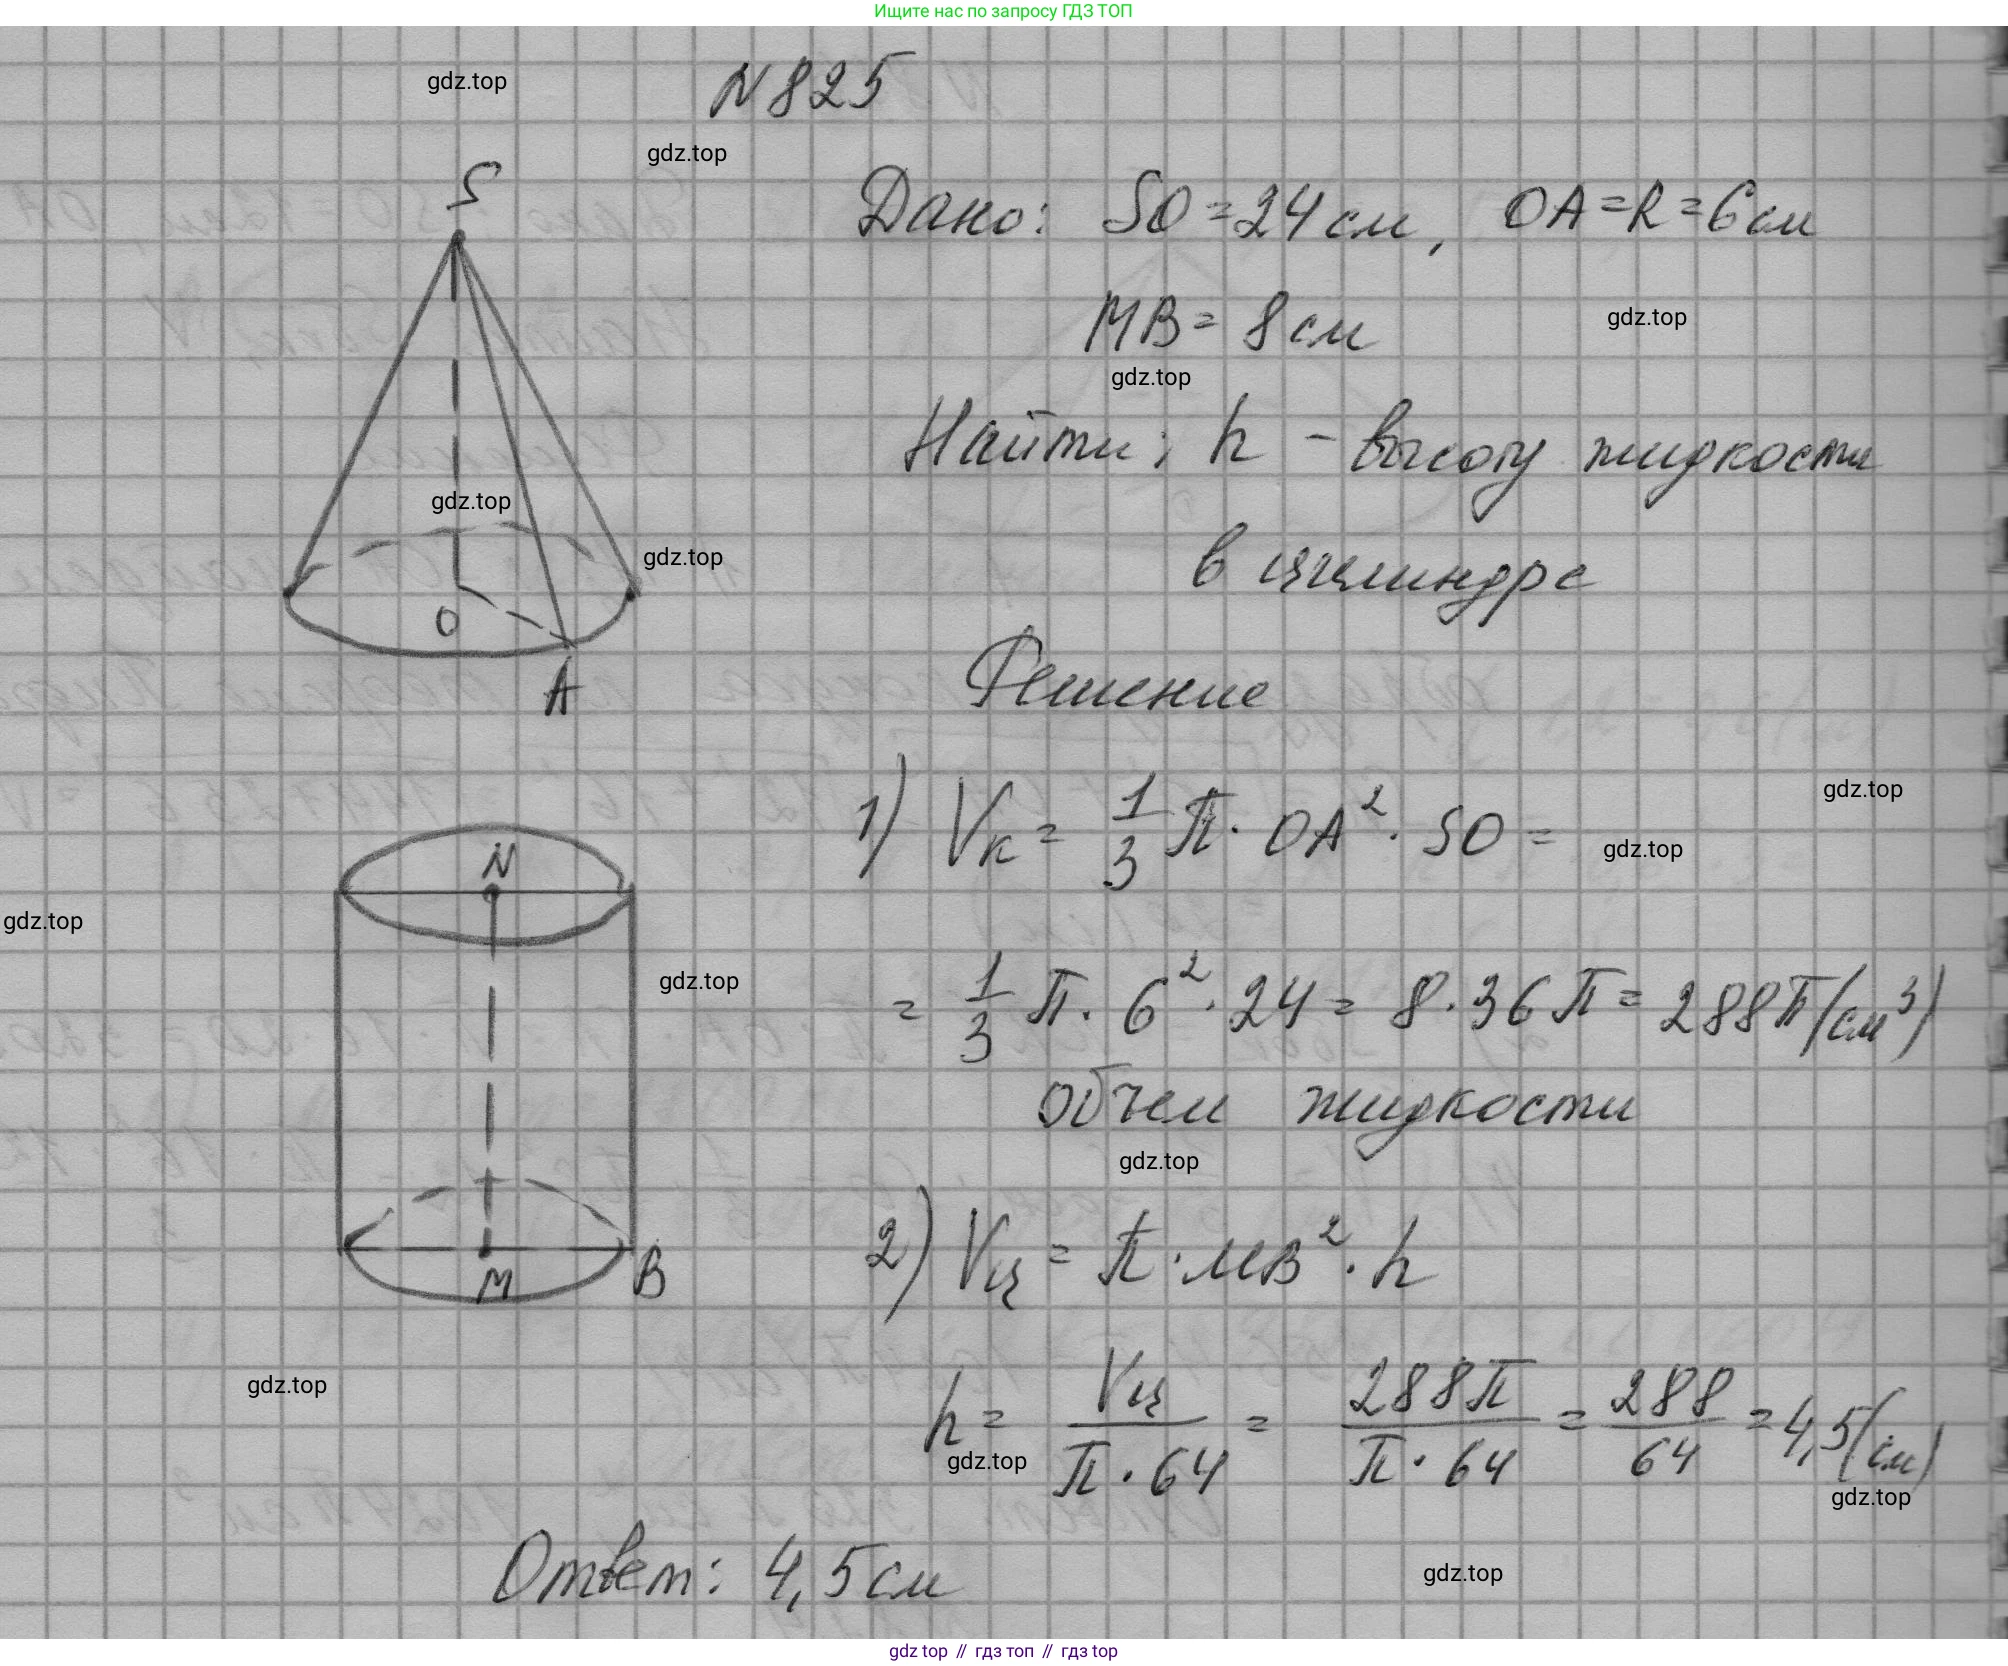 Ищите нас по запросу ГДЗ ТОП
N 825
gdz.top
gdz.top
S
Дано: SO = 24 см, OA = R = 6 см
MB = 8 см
gdz.top
gdz.top
Найти: h - высоту жидкости
в цилиндре
gdz.top
gdz.top
O
A
Решение
1) Vк = 1/3 π · OA² · SO =
gdz.top
gdz.top
N
gdz.top
gdz.top
= 1/3 π · 6² · 24 = 8 · 36 π = 288π (см³)
объем жидкости
gdz.top
2) Vц = π · MB² · h
M
B
gdz.top
h = Vц / π · 64 = 288π / π · 64 = 288 / 64 = 4,5 (см)
gdz.top
gdz.top
Ответ: 4,5 см
gdz.top
gdz top // гдз топ // гдз top